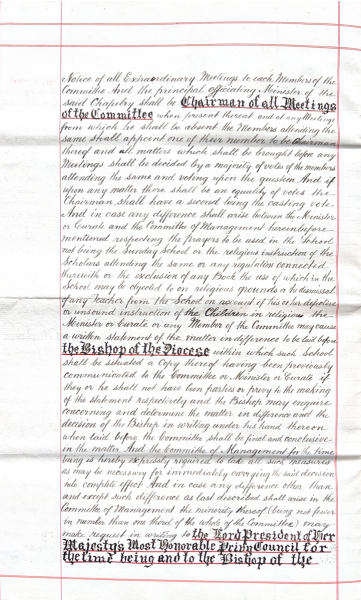 Notice of all Extraordinary Meetings to each Members of the
Committee And the principal officiating Minister of the
said Chapelry shall be Chairman of all Meetings
of the Committee when present thereat and at any Meetings
from which he shall be absent the Members attending the
same shall appoint one of their number to be Chairman
thereof and all matters which shall be brought before any
Meetings shall be decided by a majority of votes of the members
attending the same and voting upon the question And if
upon any matter there shall be an equality of votes the
Chairman shall have a second being the casting vote
And in case any difference shall arise between the Minister
or Curate and the Committee of Management hereinbefore
mentioned respecting the prayers to be used in the School
not being the Sunday School or the religious instruction of the
Scholars attending the same or any regulation connected
therewith or the exclusion of any Book the use of which in the
School may be objected to on religious grounds or the dismissal
of any Teacher from the School on account of his or her defective
or unsound instruction of the Children in religion the
Minister or Curate or any Member of the Committee may cause
a written statement of the matter in difference to be laid before
the Bishop of the Diocese within which such School
shall be situated a Copy thereof having been previously
communicated to the Committee or Minister or Curate if
they or he shall not have been parties or privy to the making
of the statement respectively and the Bishop may enquire
concerning and determine the matter in difference and the
decision of the Bishop in writing under his hand thereon
when laid before the Committee shall be final and conclusive
in the matter And the Committee of Management for the time
being is hereby expressly required to take all such measures
as may be necessary for immediately carrying the said decision
into complete effect And in case any difference other than
and except such difference as last described shall arise in the
Committee of Management the minority thereof (being not fewer
in number than one third of the whole of the Committee) may
make request in writing to the Lord President of Her
Majestys Most Honorable Privy Council for
the time being and to the Bishop of the